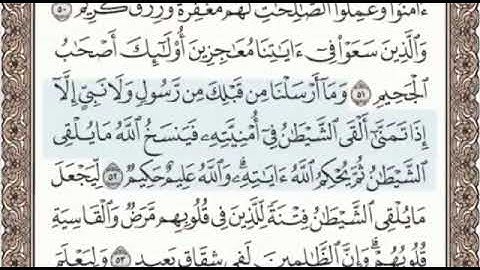 ءَامَنُوا۟ وَعَمِلُوا۟ ٱلصَّٰلِحَٰتِ لَهُم مَّغْفِرَةٌ وَرِزْقٌ كَرِيمٌ ٥٠
وَٱلَّذِينَ سَعَوْا۟ فِىٓ ءَايَٰتِنَا مُعَٰجِزِينَ أُو۟لَٰٓئِكَ أَصْحَٰبُ
ٱلْجَحِيمِ ٥١ وَمَآ أَرْسَلْنَا مِن قَبْلِكَ مِن رَّسُولٍ وَلَا نَبِىٍّ إِلَّآ
إِذَا تَمَنَّىٰٓ أَلْقَى ٱلشَّيْطَٰنُ فِىٓ أُمْنِيَّتِهِۦ فَيَنسَخُ ٱللَّهُ مَا يُلْقِى
ٱلشَّيْطَٰنُ ثُمَّ يُحْكِمُ ٱللَّهُ ءَايَٰتِهِۦ ۗ وَٱللَّهُ عَلِيمٌ حَكِيمٌ ٥٢ لِّيَجْعَلَ
مَا يُلْقِى ٱلشَّيْطَٰنُ فِتْنَةً لِّلَّذِينَ فِى قُلُوبِهِم مَّرَضٌ وَٱلْقَاسِيَةِ
قُلُوبُهُمْ ۗ وَإِنَّ ٱلظَّٰلِمِينَ لَفِى شِقَاقٍۭ بَعِيدٍ ٥٣ وَلِيَعْلَمَ